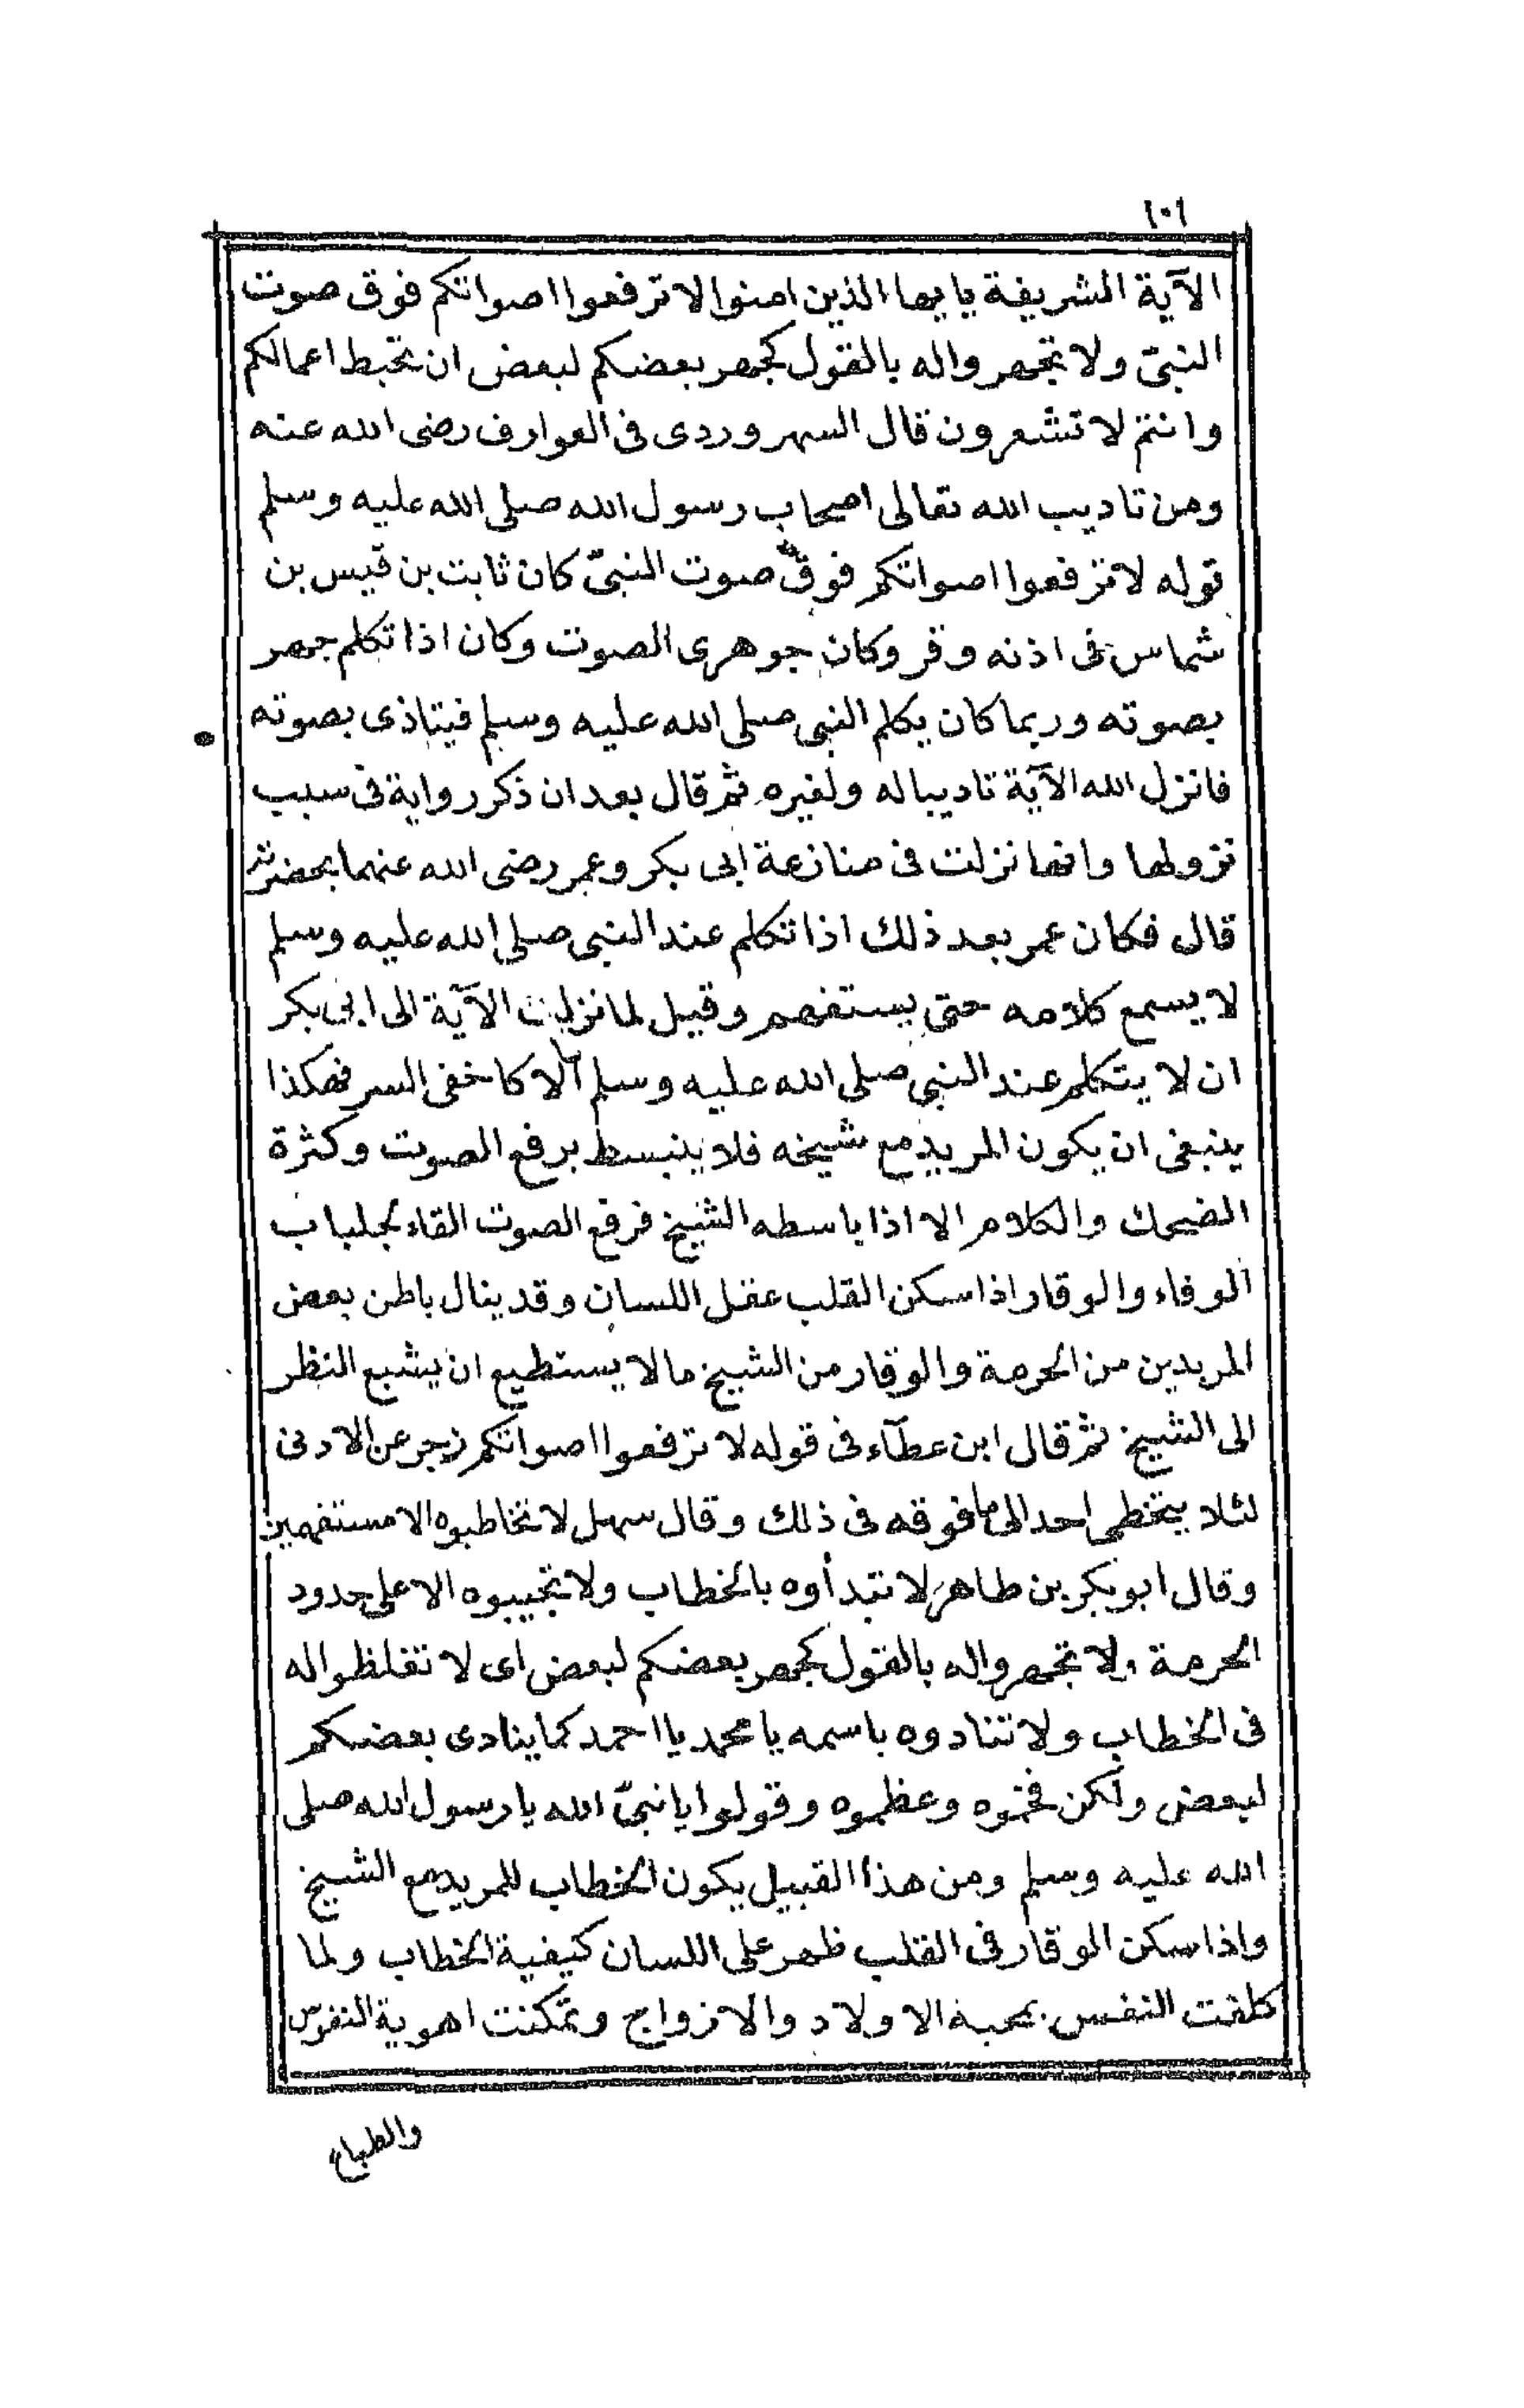 ١٠١
الآية الشريفة يايها الذين امنوا لا ترفعوا اصواتكم فوق صوت
النبىّ ولا تجهروا له بالقول كجهر بعضكم لبعض ان تحبط اعمالكم
وانتم لا تشعرون قال السهروردى فى العوارف رضى الله عنه
ومن تاديب الله تعالى اصحاب رسول الله صلى الله عليه وسلم
قوله لا ترفعوا اصواتكم فوق صوت النبىّ كان ثابت بن قيس بن
شماس فى اذنه وقر وكان جوهرى الصوت وكان اذا تكلم جهر
بصوته وربما كان يكلم النبى صلى الله عليه وسلم فيتاذى بصوته
فانزل الله الآية تاديبا له ولغيره ثم قال بعد ان ذكر رواية فى سبب
نزولها وانها نزلت فى منازعة ابى بكر وعمر رضى الله عنهما بحضرته
قال فكان عمر بعد ذلك اذا تكلم عند النبى صلى الله عليه وسلم
لا يسمع كلامه حتى يستفهم وقيل لما نزلت الآية الى ابى بكر
ان لا يتكلم عند النبى صلى الله عليه وسلم الا كاخفى السر فهكذا
ينبغى ان يكون المريد مع شيخه فلا ينبسط برفع الصوت وكثرة
الضحك والكلام الا اذا باسطه الشيخ فرفع الصوت القاء لجلباب
الوفاء والوقار اذا سكن القلب عقل اللسان وقد ينال باطن بعض
المريدين من الحرمة والوقار من الشيخ ما لا يستطيع ان يشبع النظر
الى الشيخ ثم قال ابن عطآء فى قوله لا ترفعوا اصواتكم زجر عن الادنى
لئلا يتخطى احد الى ما فوقه فى ذلك وقال سهل لا تخاطبوه الا مستفهمين
وقال ابو بكر بن طاهر لا تبتدأوه بالخطاب ولا تجيبوه الا على حدود
الحرمة ولا تجهروا له بالقول كجهر بعضكم لبعض اى لا تغلظوا له
فى الخطاب ولا تنادوه باسمه يا محمد يا احمد كما ينادى بعضكم
لبعض ولكن فخموه وعظموه وقولوا يا نبىّ الله يا رسول الله صلى
الله عليه وسلم ومن هذا القبيل يكون الخطاب للمريد مع الشيخ
واذا سكن الوقار فى القلب ظهر على اللسان كيفية الخطاب ولما
كلفت النفس بمحبة الاولاد والازواج وتمكنت اهوية النفوس
والطباع